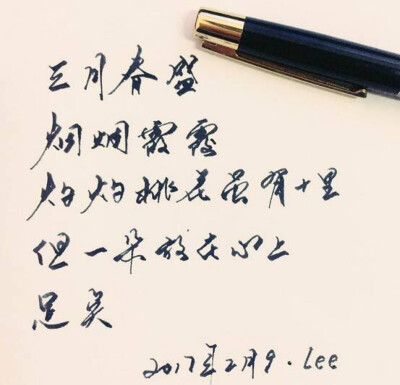 三月春盛
烟烟霞霞
灼灼桃花虽有十里
但一朵放在心上
足矣
2017年2月9.Lee